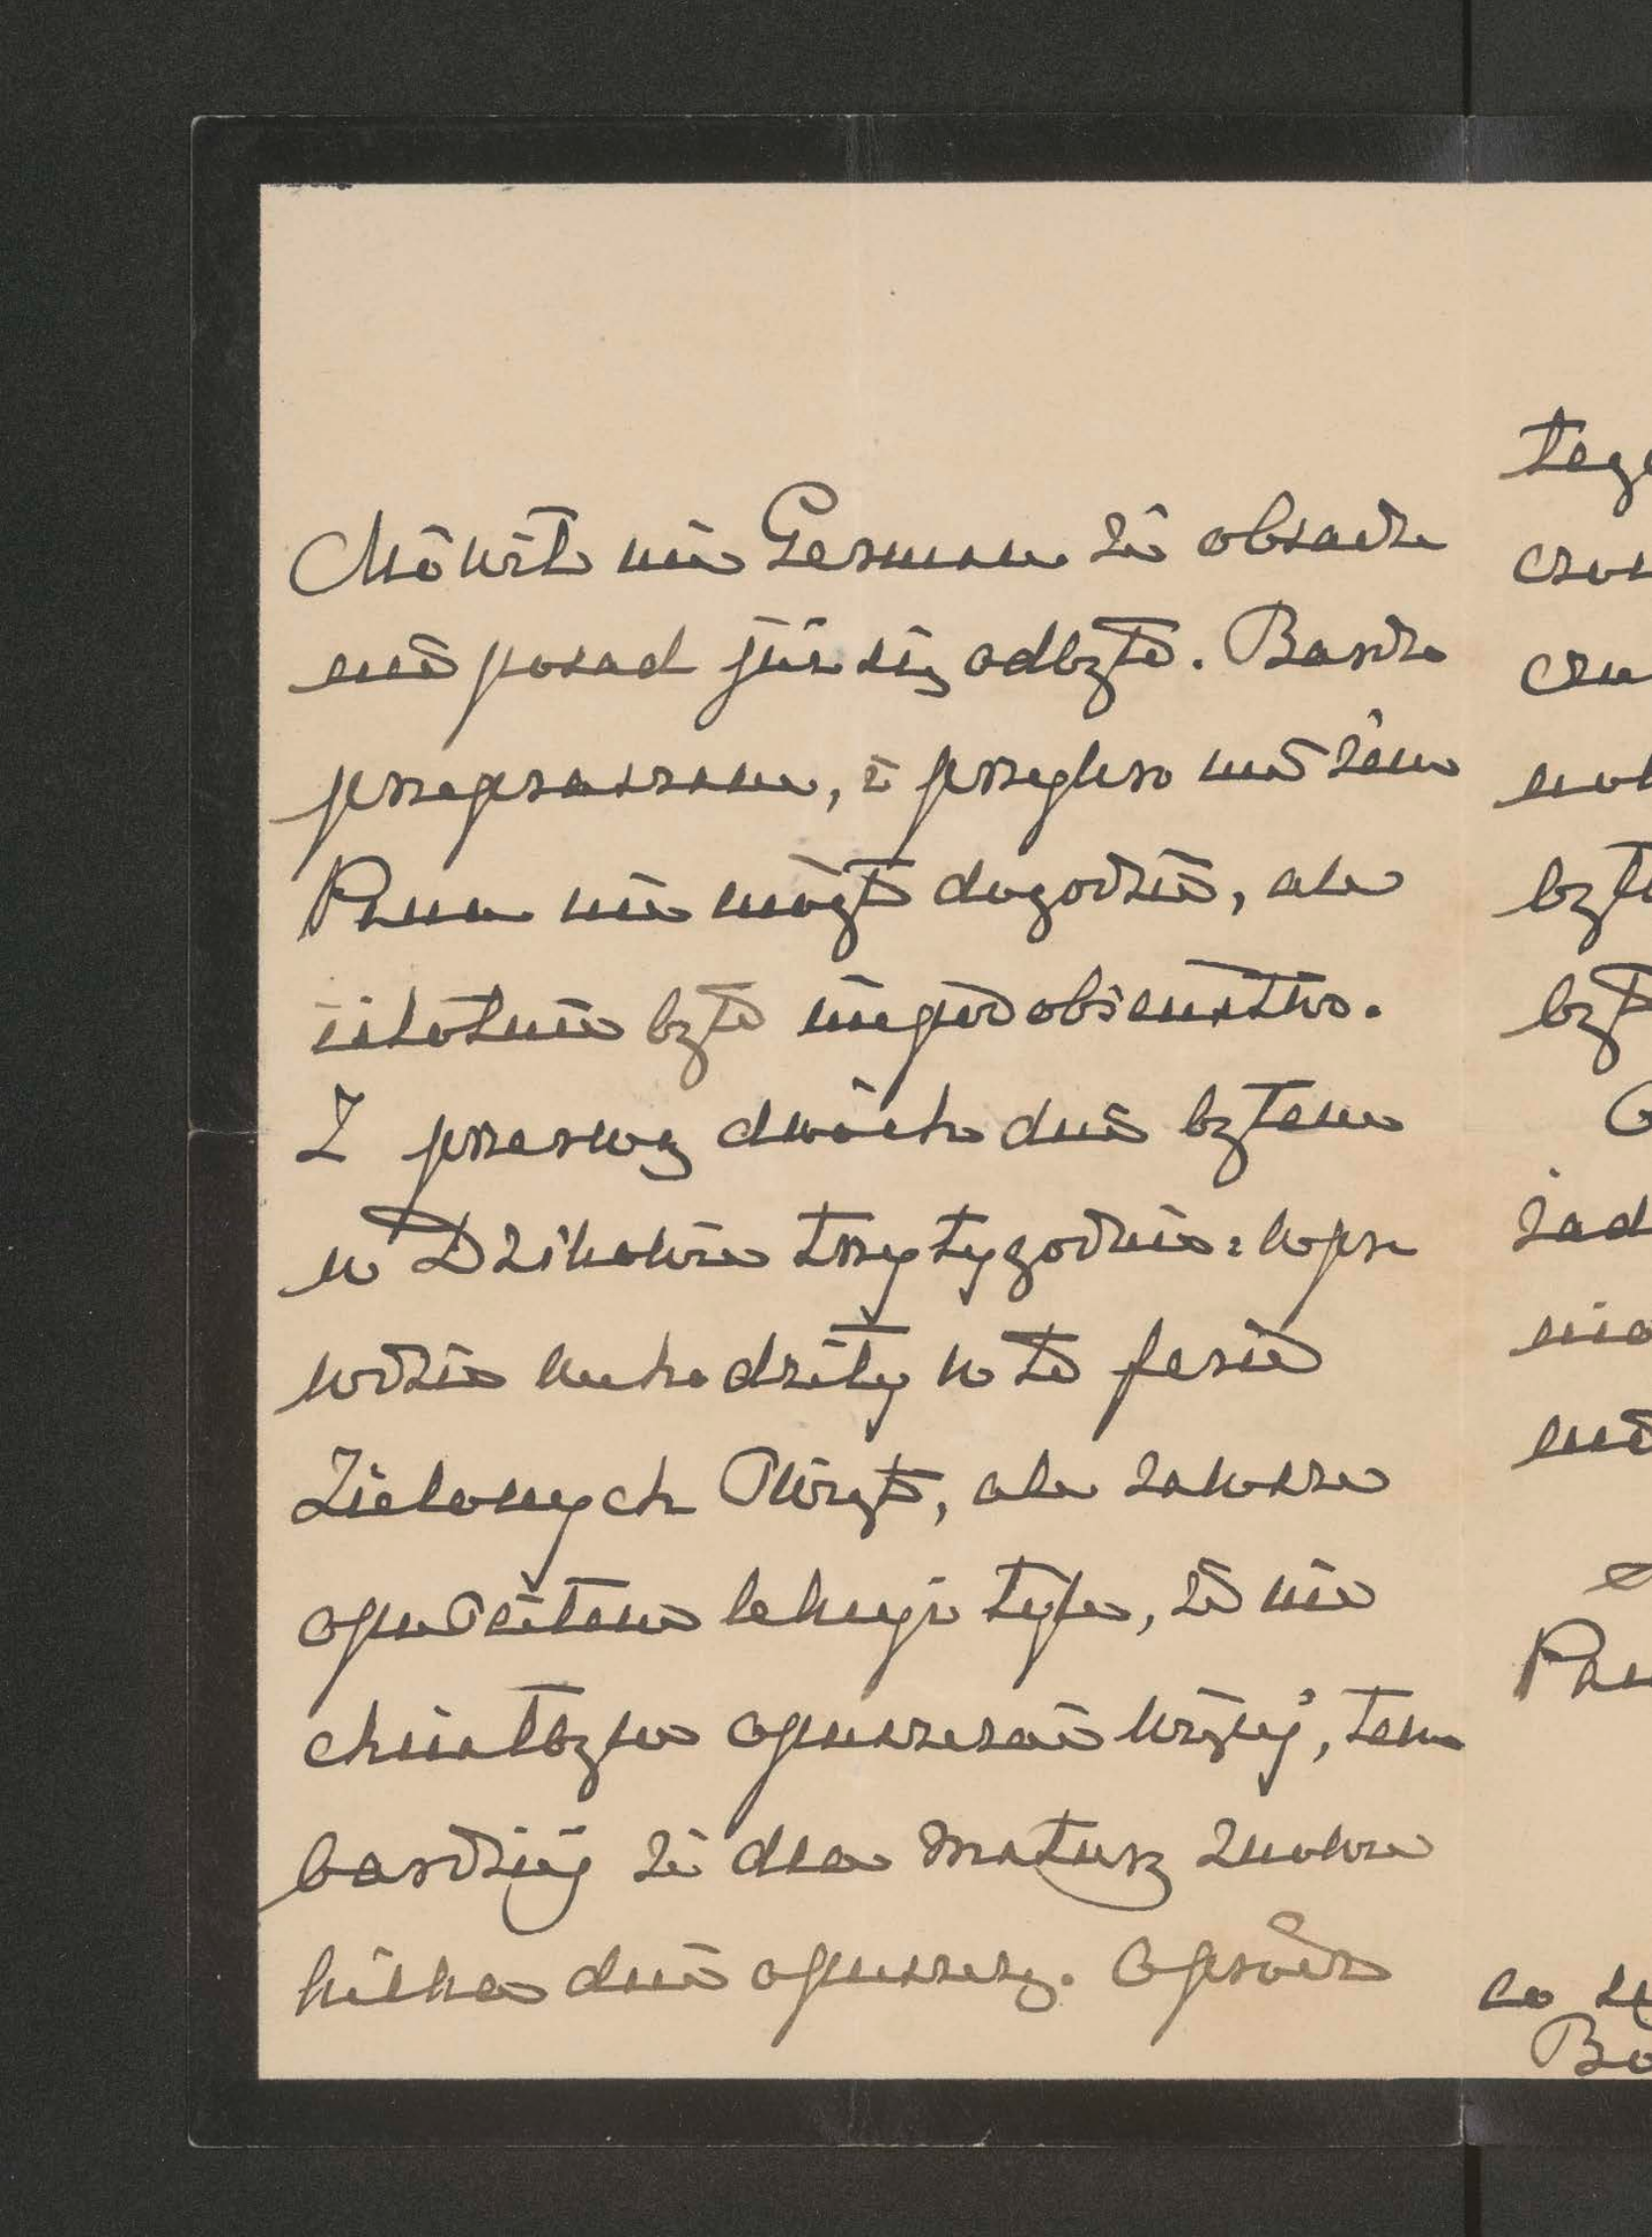 Mówił mi German że obsadze
nie posad już się odbyło. Bardzo
przepraszam, i przykro mi żem
Panu nie mógł dogodzić, ale
istotnie było niepodobieństwo.
Z przerwą dwóch dni byłem
w Dzikowie trzy tygodnie: wpra
wdzie wchodziły w to ferie
Zielonych Świąt, ale zawsze
opuściłem lekcyi tyle, że nie
chciałbym opuszczać więcej, tem
bardziej że dla matury znowu
kilka dni opuszczę. Oprócz